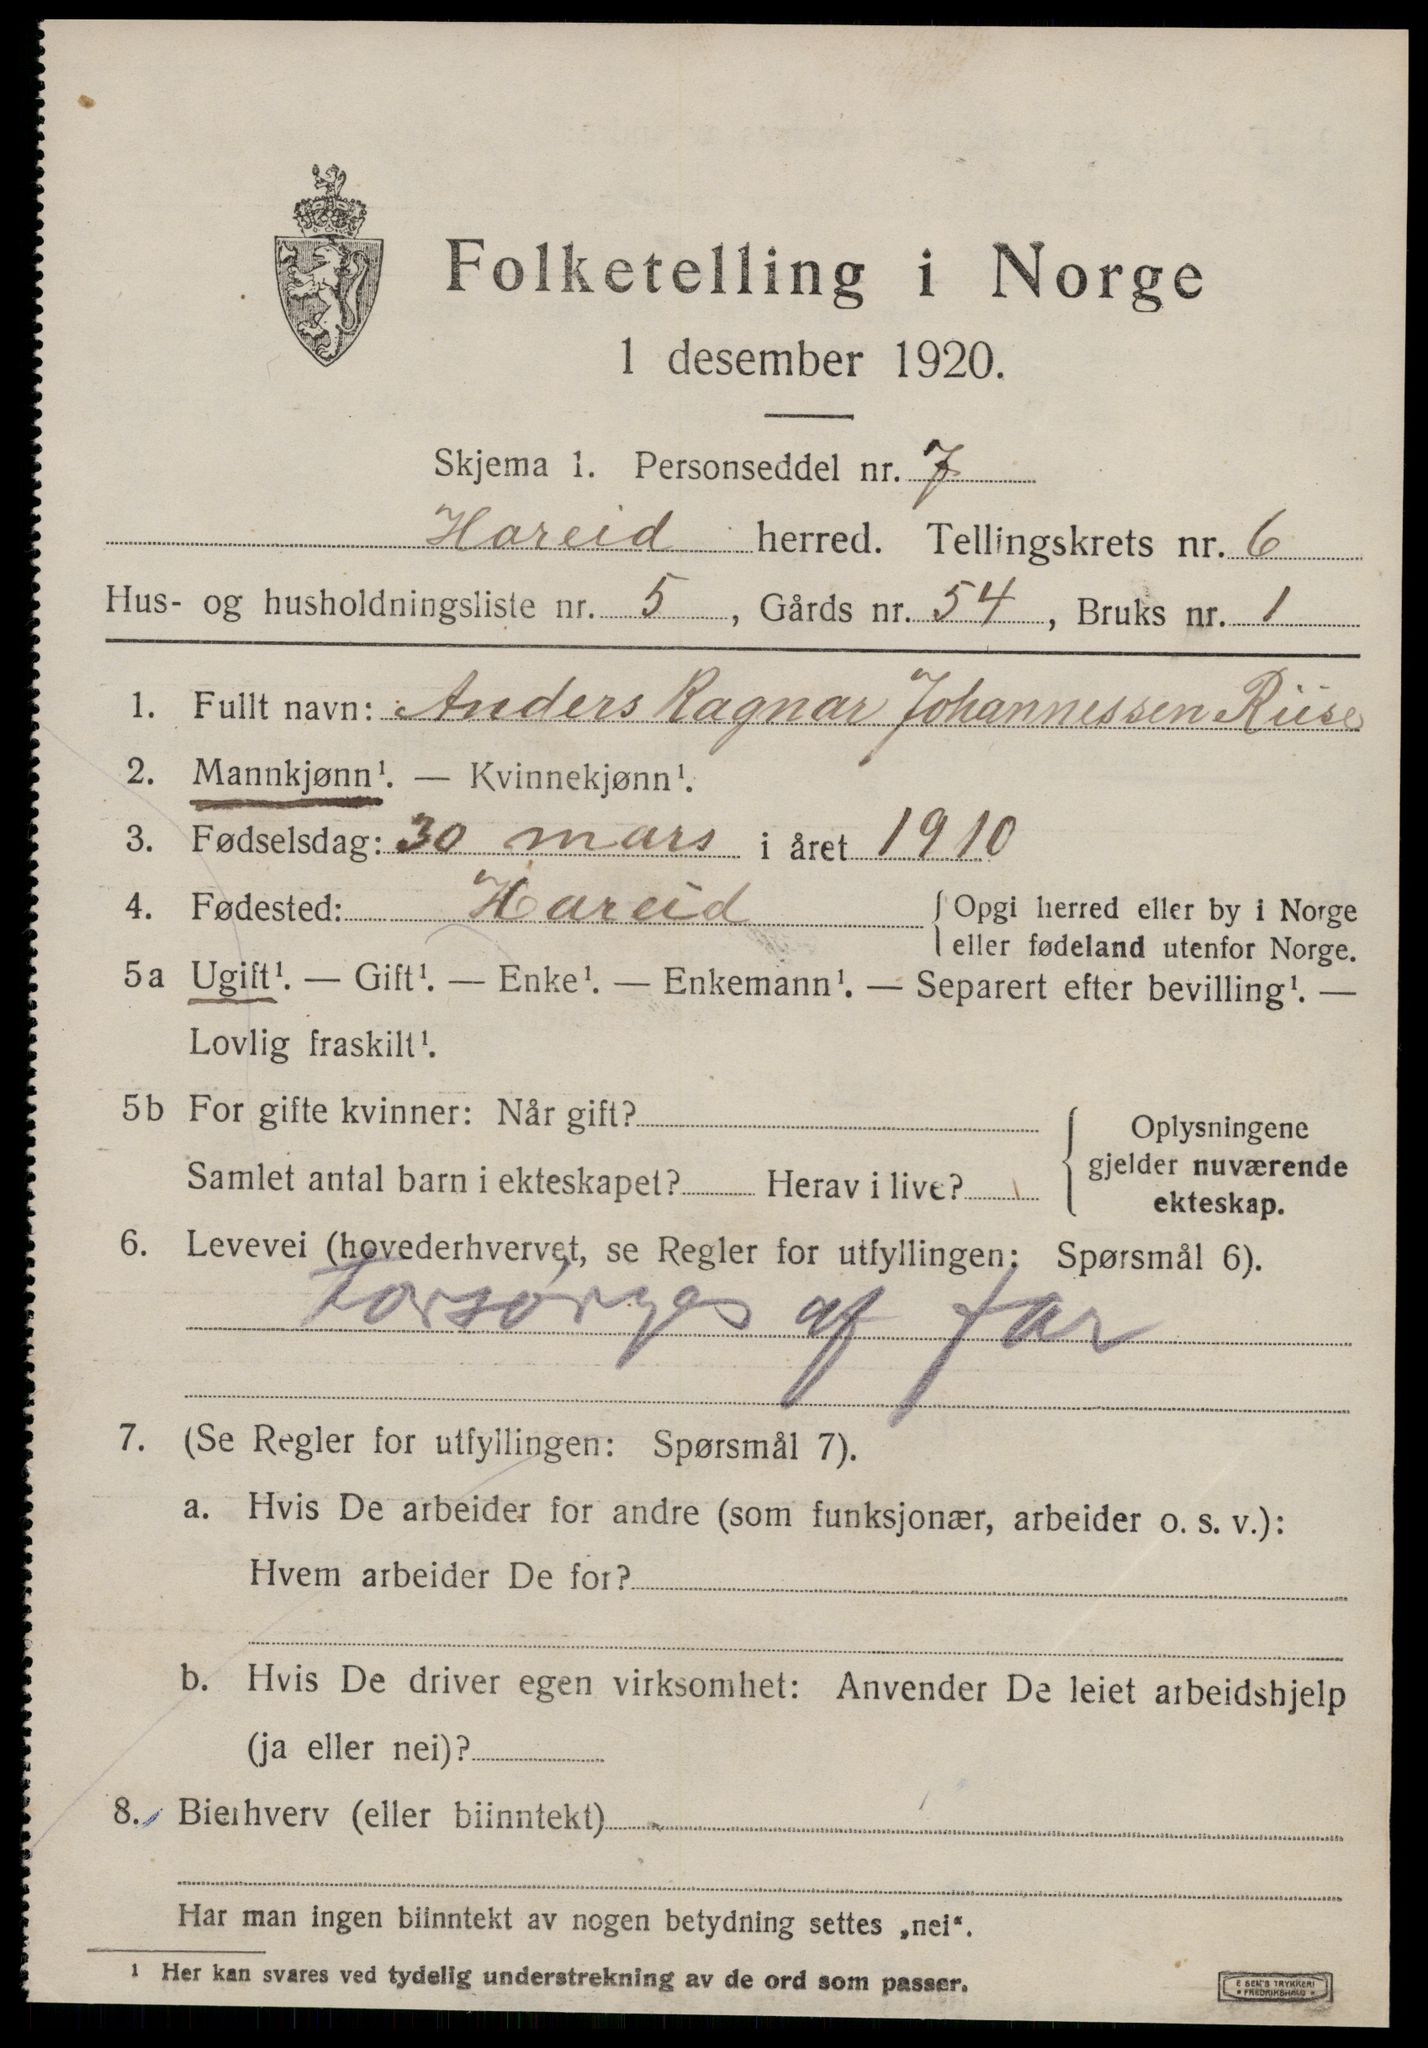 Folketelling i Norge
1 desember 1920.
Skjema 1. Personseddel nr. 7
Hareid herred. Tellingskrets nr. 6
Hus- og husholdningsliste nr. 5, Gårds nr. 54, Bruks nr. 1
1. Fullt navn: Anders Ragnar Johannessen Riise
2. Mannkjønn¹. — Kvinnekjønn¹.
3. Fødselsdag: 30 mars i året 1910
4. Fødested: Hareid { Opgi herred eller by i Norge
eller fødeland utenfor Norge.
5a Ugift¹. — Gift¹. — Enke¹. — Enkemann¹. — Separert efter bevilling¹. —
Lovlig fraskilt¹.
5b For gifte kvinner: Når gift?
Samlet antal barn i ekteskapet? Herav i live?
{ Oplysningene
gjelder nuværende
ekteskap.
6. Levevei (hovederhvervet, se Regler for utfyllingen: Spørsmål 6).
Forsørges af far
7. (Se Regler for utfyllingen: Spørsmål 7).
a. Hvis De arbeider for andre (som funksjonær, arbeider o. s. v.):
Hvem arbeider De for?
b. Hvis De driver egen virksomhet: Anvender De leiet arbeidshjelp
(ja eller nei)?
8. Bierhverv (eller biinntekt)
Har man ingen biinntekt av nogen betydning settes „nei“.
¹ Her kan svares ved tydelig understrekning av de ord som passer.
TRYKKERI
FREDRIKSHALD